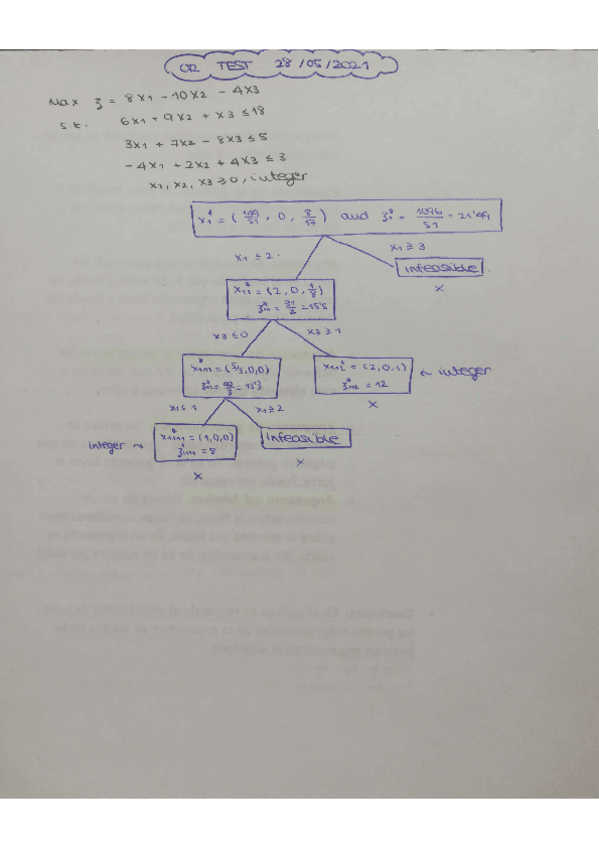 OR TEST 28/05/2021
Max z = 8x1 - 10x2 - 4x3
s.t. 6x1 + 9x2 + x3 ≤ 18
3x1 + 7x2 - 8x3 ≤ 5
-4x1 + 2x2 + 4x3 ≤ 3
x1, x2, x3 ≥ 0, integer
x1* = (149/51, 0, 8/17) and z1* = 1096/51 = 21'49
x1 ≤ 2 x1 ≥ 3
infeasible
x
x11* = (2, 0, 1/8)
z11* = 31/2 = 15'5
x3 ≤ 0 x3 ≥ 1
x111* = (5/3, 0, 0) x112* = (2, 0, 1) ← integer
z111* = 40/3 = 13'3 z112* = 12
x
x1 ≤ 1 x1 ≥ 2
integer x1111* = (1, 0, 0) Infeasible
z1111* = 8
x x